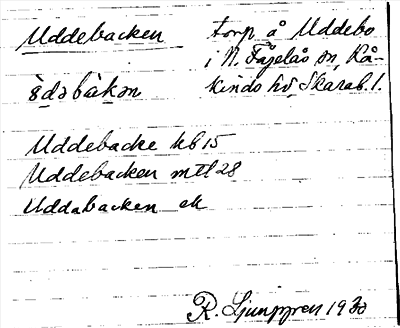 Uddebacken torp å Uddebo
i N. Fågelås sn, Kå-
kinds hd, Skarab. l.
ɞ̀dəbàkən
Uddebacke kb 15
Uddebacken mtl 28
Uddabacken ek
R. Ljunggren 1930